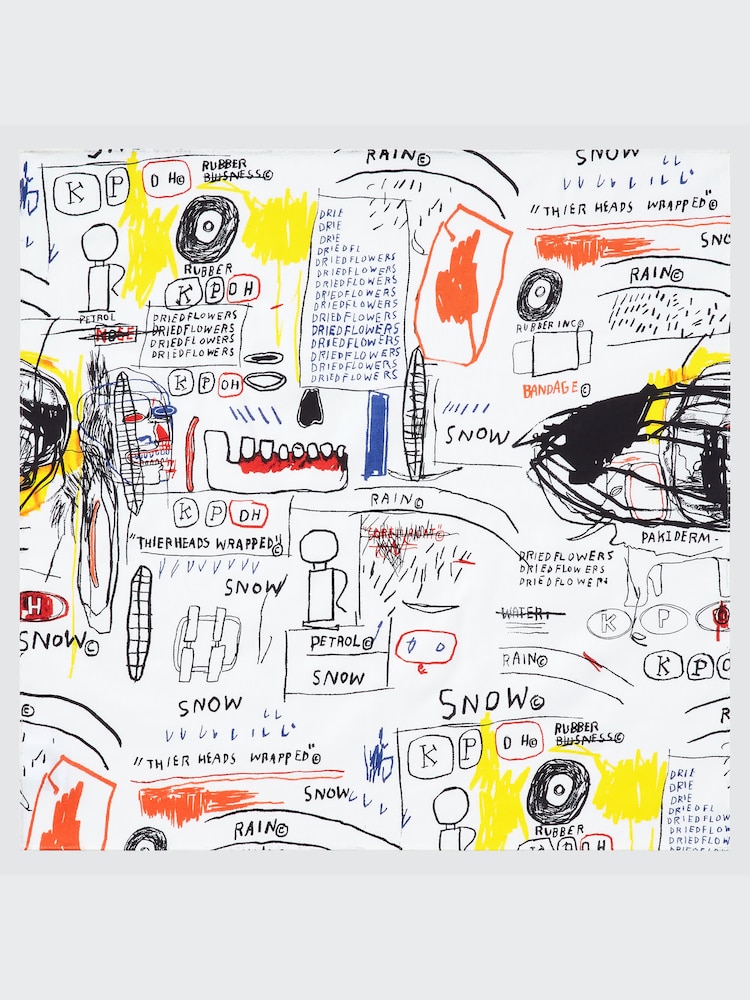 SNOW
RAIN©
SNOW
K P DH©
RUBBER
BUISNESS©
"THIER HEADS WRAPPED"©
SNO
RAIN©
DRIE
DRIE
DRIE
DRIEDFL
DRIEDFLOWERS
DRIEDFLOWERS
DRIEDFLOWERS
DRIEDFLOWERS
DRIEDFLOWERS
DRIEDFLOWERS
DRIEDFLOWERS
DRIEDFLOWERS
DRIEDFLOWERS
DRIEDFLOWERS
RUBBER
K P DH
PETROL
NOSE
DRIEDFLOWERS
DRIEDFLOWERS
DRIEDFLOWERS
DRIEDFLOWERS
RUBBER INC©
K P DH
BANDAGE©
SNOW
RAIN©
K P DH
"THIER HEADS WRAPPED"©
"SORE THROAT"©
PAKIDERM-
DRIEDFLOWERS
DRIEDFLOWERS
DRIEDFLOWER
SNOW
H
SNOW©
WATER
K P
PETROL©
SNOW
RAIN©
K P D
SNOW
SNOW©
"THIER HEADS WRAPPED"©
K P DH©
RUBBER
BUISNESS©
SNOW
RAIN©
RUBBER
DRIE
DRIE
DRIE
DRIEDFL
DRIEDFLOW
DRIEDFLOW
DRIEDFLOW